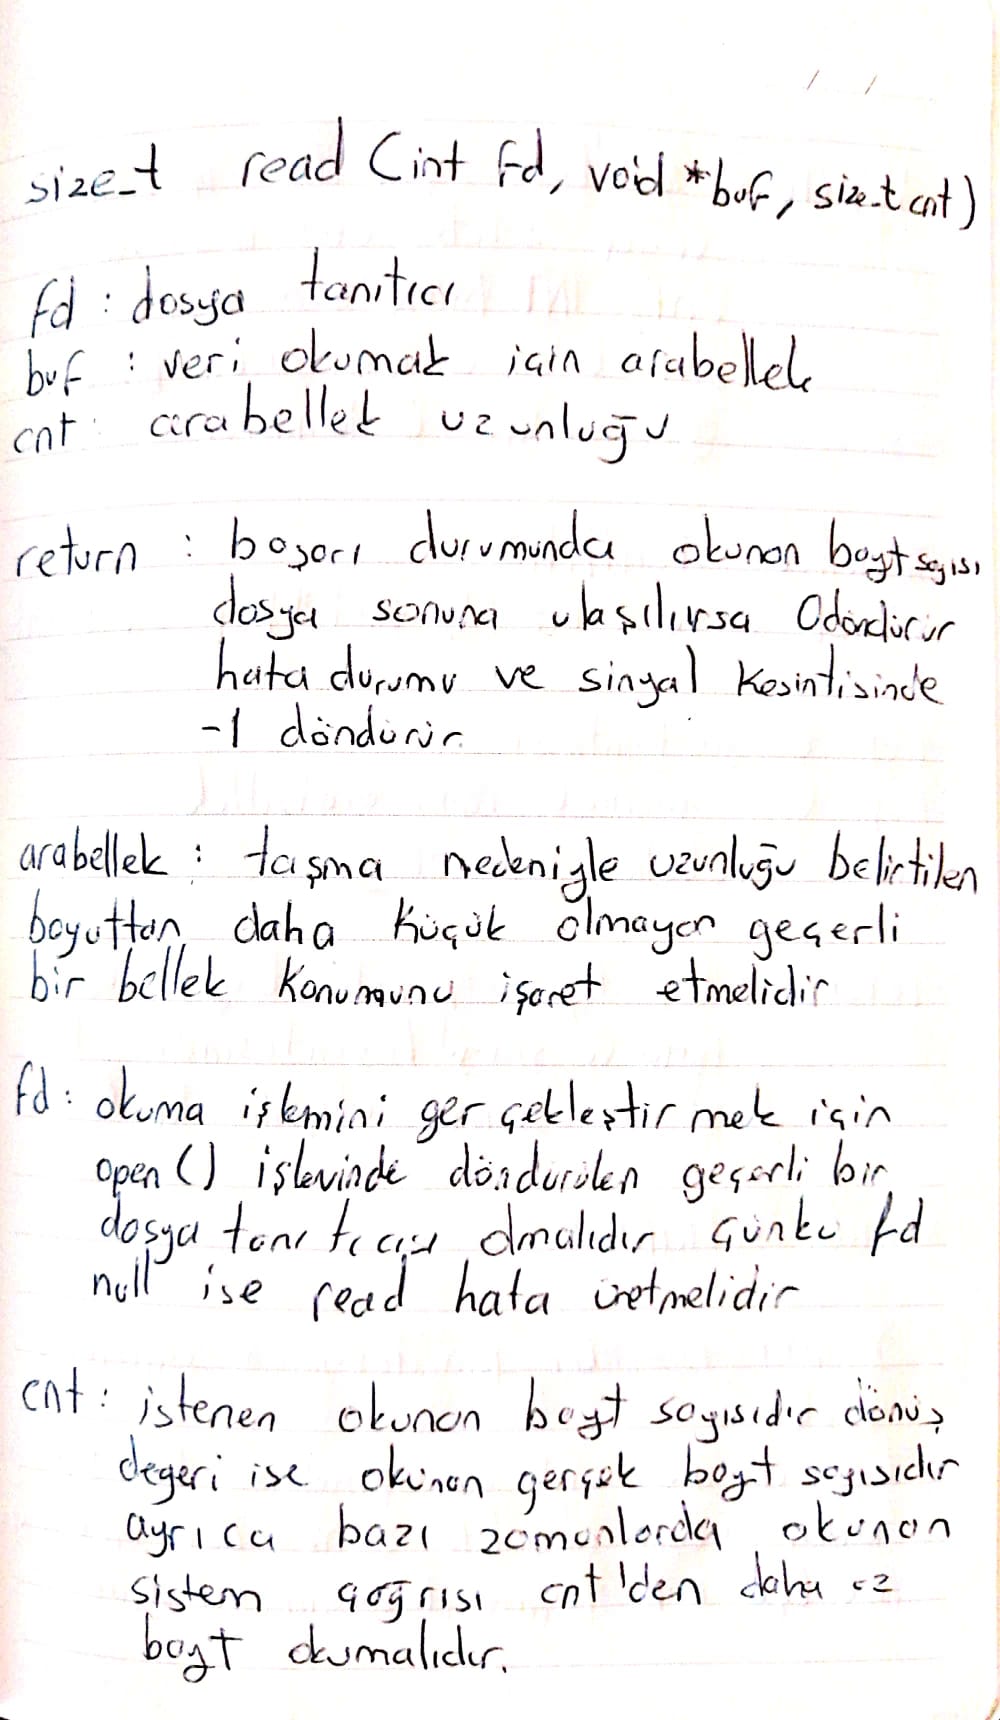 size_t read (int fd, void *buf, size_t cnt)
fd : dosya tanıtıcı
buf : veri okumak için arabellek
cnt : arabellek uzunluğu
return : başarı durumunda okunan bayt sayısı
dosya sonuna ulaşılırsa 0 döndürür
hata durumu ve sinyal kesintisinde
-1 döndürür.
arabellek : taşma nedeniyle uzunluğu belirtilen
boyuttan daha küçük olmayan geçerli
bir bellek konumunu işaret etmelidir
fd : okuma işlemini gerçekleştirmek için
open () işlevinde döndürülen geçerli bir
dosya tanıtıcısı olmalıdır çünkü fd
null ise read hata üretmelidir
cnt : istenen okunan bayt sayısıdır dönüş
degeri ise okunan gerçek bayt sayısıdır
ayrıca bazı zamanlarda okunan
sistem çağrısı cnt'den daha az
bayt okumalıdır.